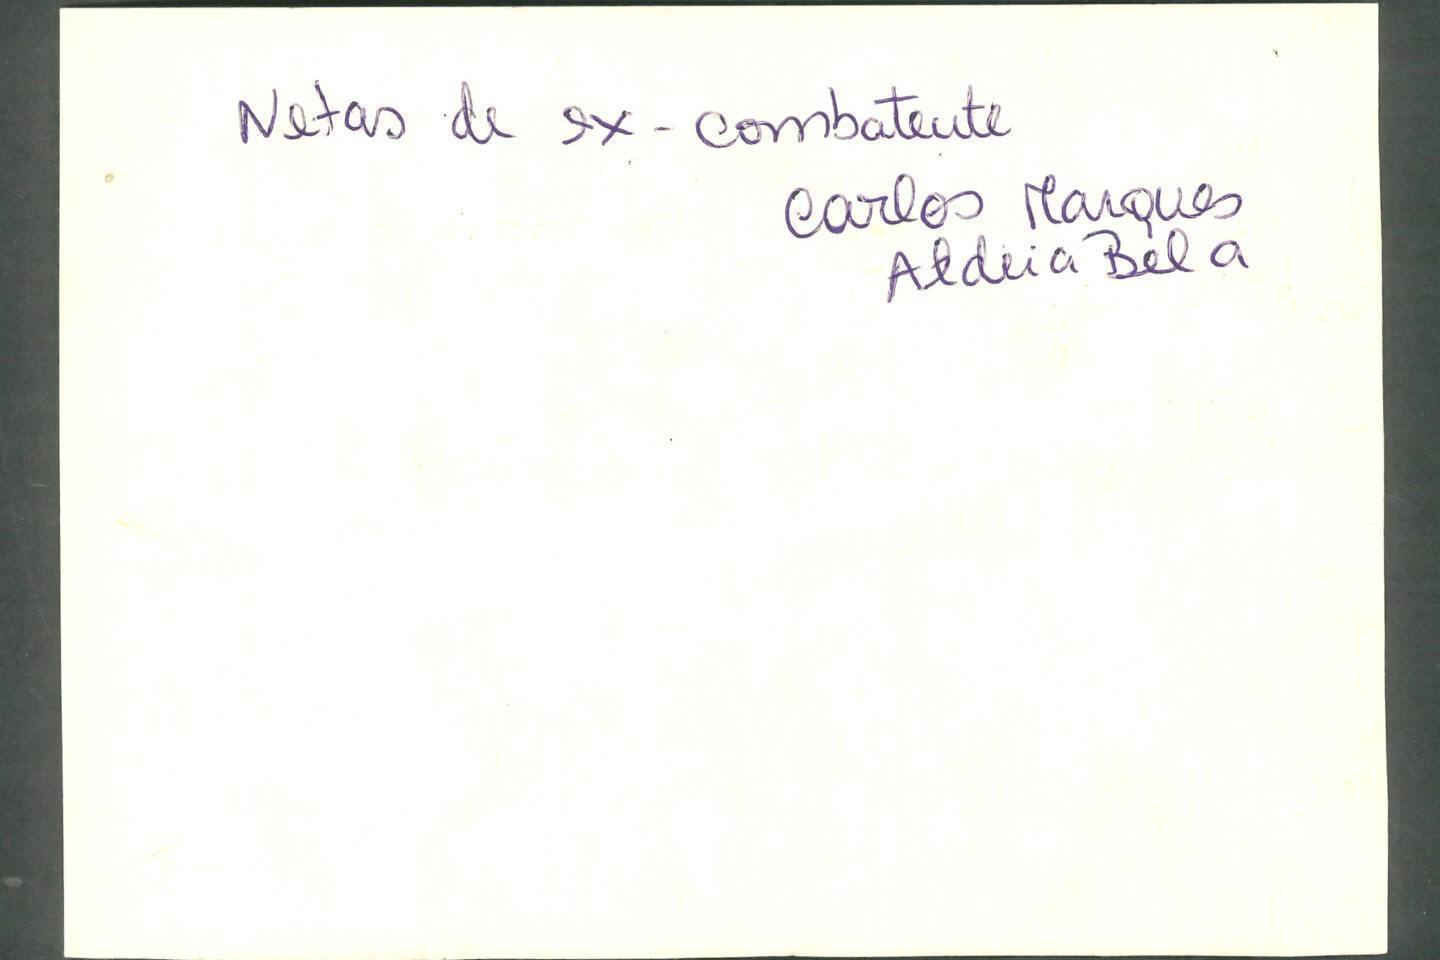 Netas de ex-combatente
Carlos Marques
Aldeia Bela